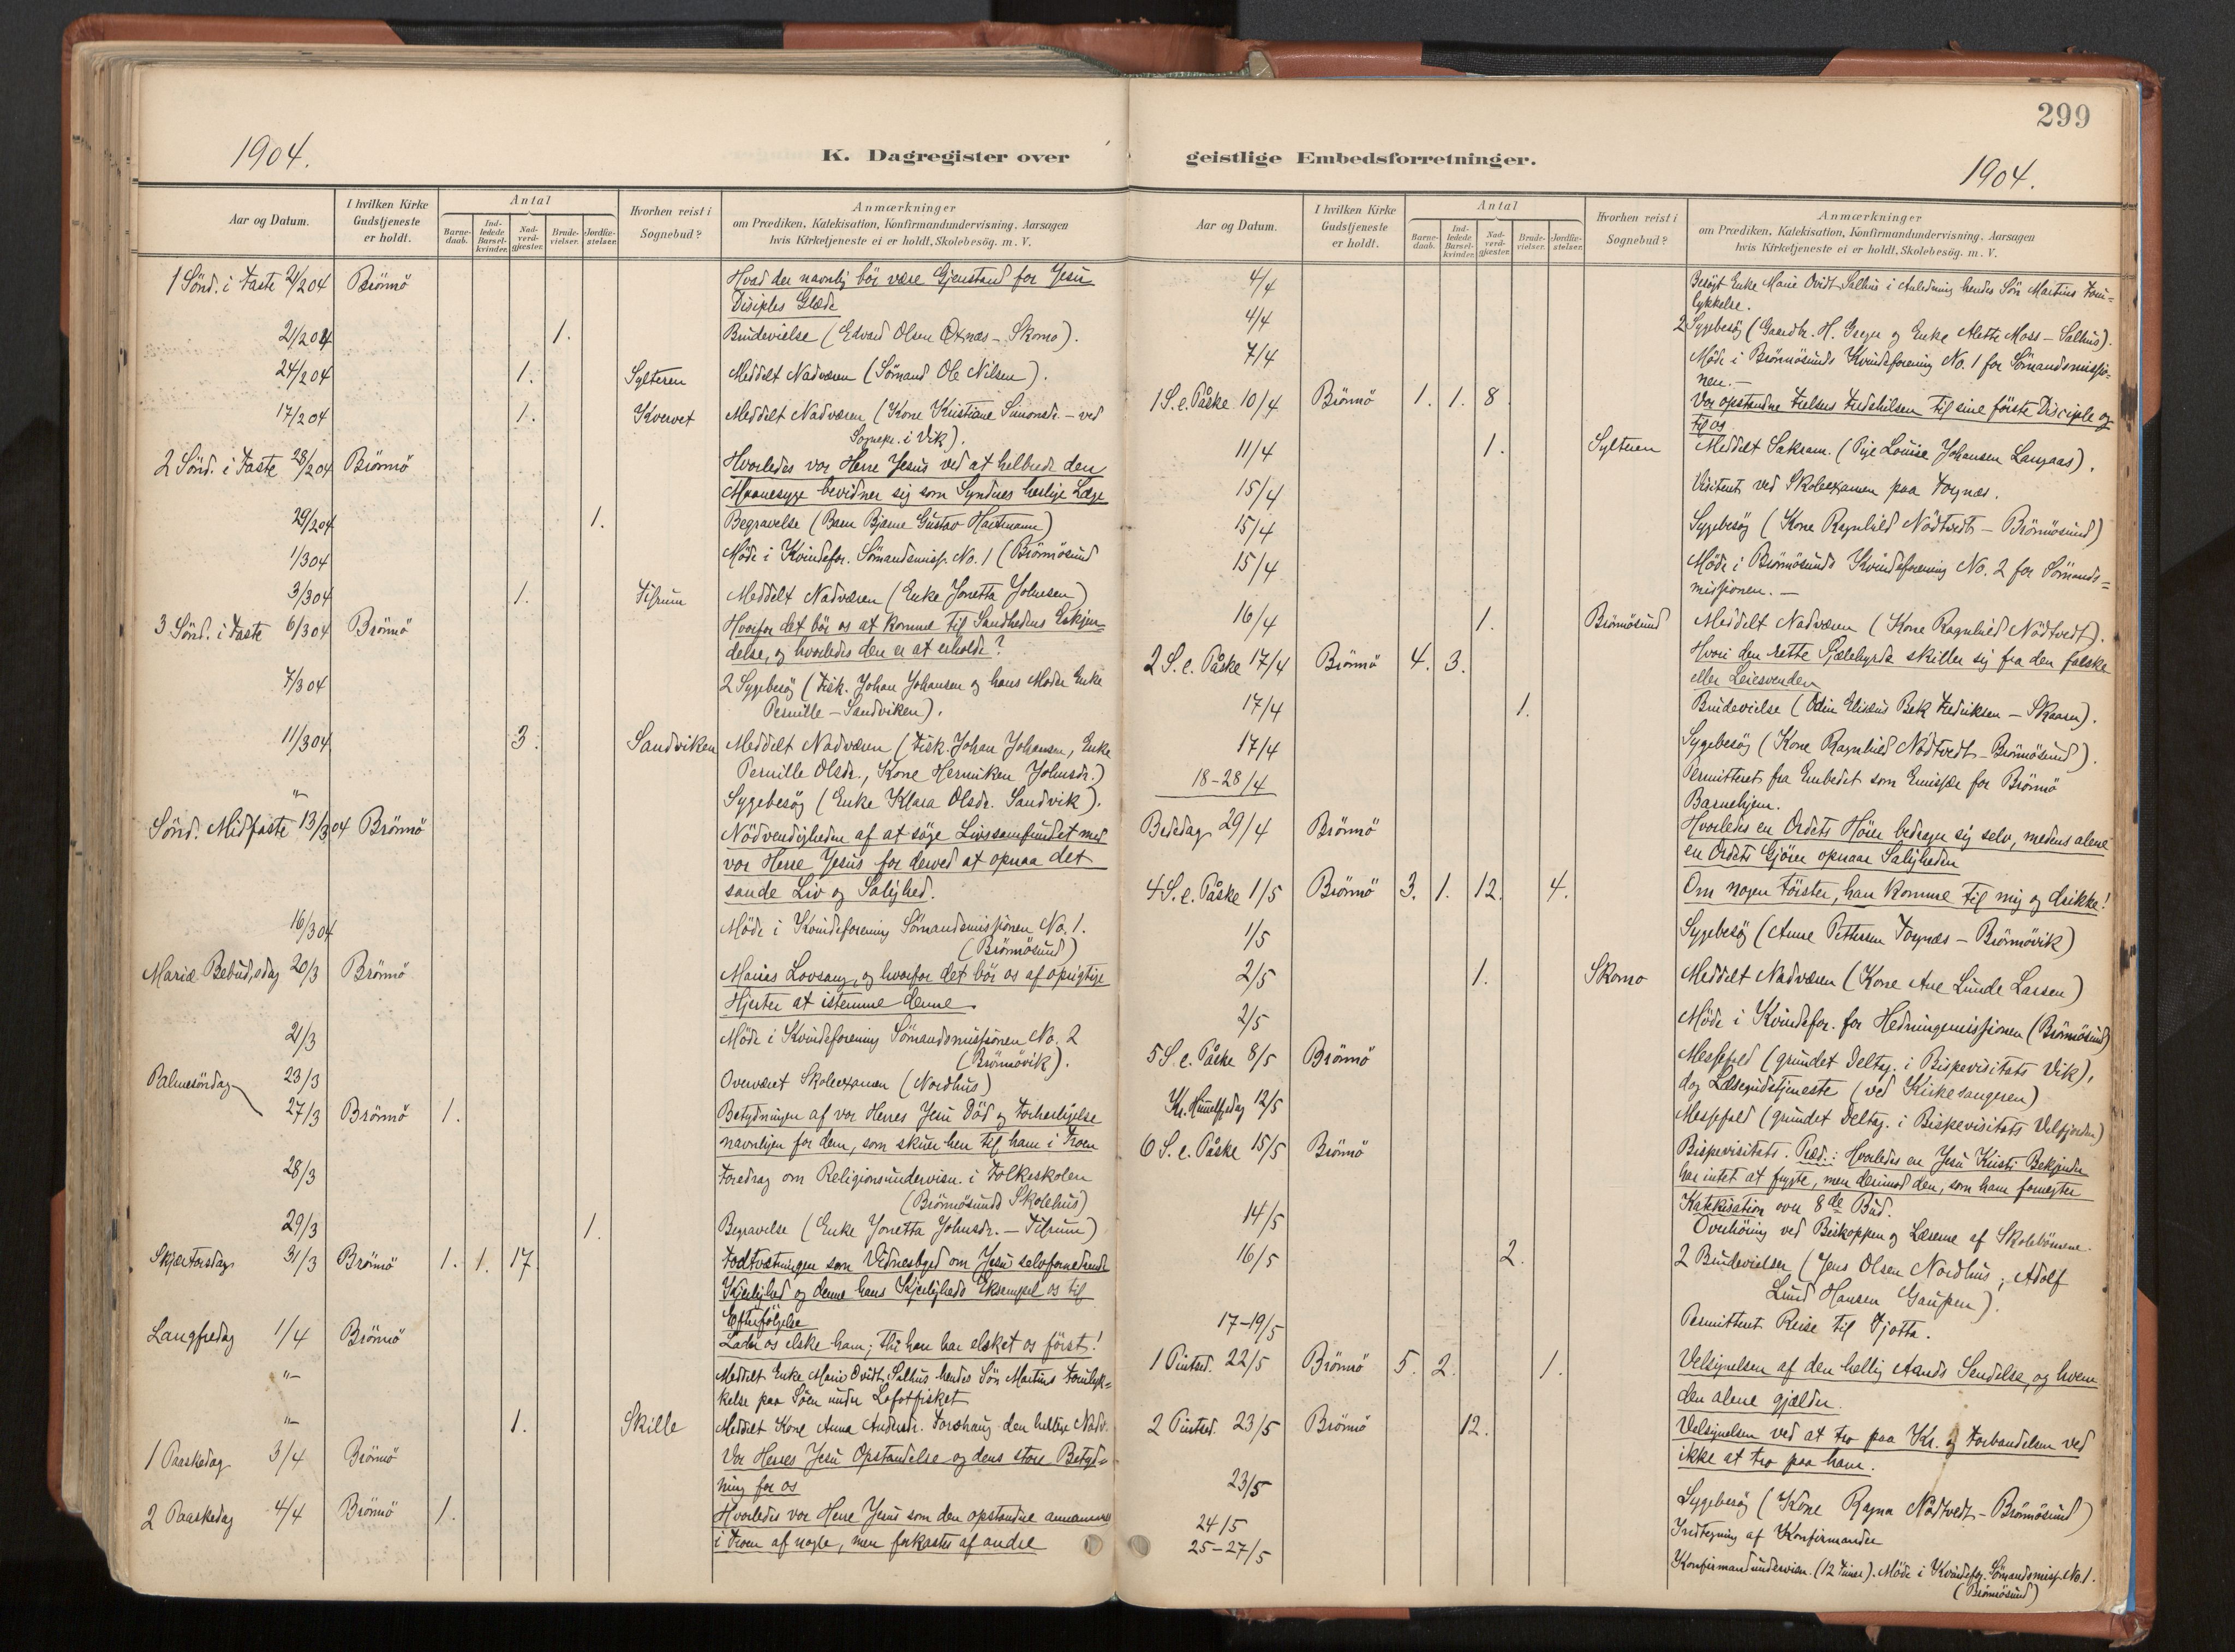 299
1904.
K. Dagregister over
Aar og Datum.
I hvilken Kirke Gudstjeneste er holdt.
Antal
Barne-daab.
Ind-ledede Barsel-kvinder.
Nad-verd-gjester.
Brude-vielser.
Jordfæ-stelser.
Hvorhen reist i Sognebud?
Anmærkninger
om Prædiken, Katekisation, Konfirmandundervisning, Aarsagen
hvis Kirketjeneste ei er holdt, Skolebesög. m. V.
1 Sönd. i Faste 21/2 04 Brönnö Hvad der navnlig bör være Gjenstand for Jesu
Disciples Glæde
21/2 04 1. Brudevielse (Edvard Olsen Öxnæs – Skomo).
24/2 04 1. Sylteren Meddelt Nadveren (Sömand Ole Nilsen).
17/2 04 1. Kvervet Meddelt Nadveren (Kone Kristiane Simonsdr. – ved
Sognepr. i Vik).
2 Sönd. i Faste 28/2 04 Brönnö Hvorledes vor Herre Jesus ved at helbrede den
Maanesyge bevidner sig som Syndens herlige Læge
29/2 04 1. Begravelse (Barn Bjarne Gustav Hartmann)
1/3 04 Möde i Kvindefor. Sömandsmisj. No. 1 (Brönnösund
3/3 04 1. Tilrum Meddelt Nadveren (Enke Jonetta Johnsen)
3 Sönd. i Faste 6/3 04 Brönnö Hvorfor det bör os at komme til Sandhedens Erkjen-
delse, og hvorledes den er at erholde?
7/3 04 2 Sygebesög (Fisk. Johan Johansen og hans Moder Enke
Pernille – Sandviken).
11/3 04 3. Sandviken Meddelt Nadveren (Fisk. Johan Johansen, Enke
Pernille Olsdr., Kone Herniken Johnsdr.)
"– Sygebesög (Enke Klara Olsdr. Sandvik).
Sönd. Midfaste 13/3 04 Brönnö Nödvendigheden af at söge Livssamfundet med
vor Herre Jesus for derved at opnaa det
sande Liv og Salighed.
16/3 04 Möde i Kvindeforening Sömandsmissionen No. 1.
(Brönnösund)
Mariæ Bebud.sdag 20/3 Brönnö Marias Lovsang, og hvorfor det bör os af oprigtige
Hjerter at istemme denne.
21/3 Möde i Kvindeforening Sömandsmissionen No. 2
(Brönnövik).
23/3 Overværet Skoleexamen (Nordhus)
Palmesöndag 27/3 Brönnö 1. Betydningen af vor Herres Jesu Död og Forherligelse
navnligen for dem, som skuer hen til ham i Troen
28/3 Foredrag om Religionsundervisn. i Folkeskolen
(Brönnösunds Skolehus)
29/3 1. Begravelse (Enke Jonetta Johnsdr. – Tilrum)
Skjærtorsdag 31/3 Brönnö 1. 1. 17. Fodtvætningen som Vidnesbyrd om Jesu selvfornedrende
Kjærlighed og denne hans Kjærligheds Eksempel os til
Efterfölgelse
Langfredag 1/4 Brönnö Lader os elske ham; thi han har elsket os först!
"– Meddelt Enke Marie Qvidt, Salhus hendes Sön Martins Forulyk-
kelse paa Söen under Lofotfisket
"– 1. Skille Meddelt Kone Anna Andersdr. Torshaug den hellige Nadv.
1 Paaskedag 3/4 Brönnö Vor Herres Jesu Opstandelse og dens store Betyd-
ning for os
2 Paaskedag 4/4 Brönnö 1. Hvorledes vor Herre Jesus som den opstandne annammes
i Troen af nogle, men forkastes af andre
geistlige Embedsforretninger.
1904.
Aar og Datum.
I hvilken Kirke Gudstjeneste er holdt.
Antal
Barne-daab.
Ind-ledede Barsel-kvinder.
Nad-verd-gjester.
Brude-vielser.
Jordfæ-stelser.
Hvorhen reist i Sognebud?
Anmærkninger
om Prædiken, Katekisation, Konfirmandundervisning, Aarsagen
hvis Kirketjeneste ei er holdt, Skolebesög. m. V.
4/4 Besögt Enke Marie Qvidt Salhus i Anledning hendes Sön Martins Foru-
lykkelse.
4/4 2 Sygebesög (Gaardbr. H. Greger og Enke Alette Moss – Salhus).
7/4 Möde i Brönnösunds Kvindeforening No. 1 for Sömandsmissio-
nen. –
1 S. e. Påske 10/4 Brönnö 1. 1. 8. Vor opstandne Frelsers Fredshilsen til sine förste Disciple og
til os
11/4 1. Sylteren Meddelt Sakram. (Pige Louise Johansen Langaas).
15/4 Visitert ved Skoleexamen paa Torgnæs.
15/4 Sygebesög (Kone Ragnhild Nödtvedt – Brönnösund)
15/4 Möde i Brönnösunds Kvindeforening No. 2 for Sömands-
missionen. –
16/4 1. Brönnösund Meddelt Nadveren (Kone Ragnhild Nödtvedt).
2 S. e. Påske 17/4 Brönnö 4. 3. Hvori den rette Sjælehyrde skiller sig fra den falske
eller Leiesvenden
17/4 1. Brudevielse (Odin Elisæus Bek Fredriksen – Skaaren).
17/4 Sygebesög (Kone Ragnhild Nödtvedt – Brönnösund).
18–28/4 Permitteret fra Embedet som Emissær for Brönnö
Barnehjem.
Bededag 29/4 Brönnö Hvorledes en Ordets Hörer bedrager sig selv, medens alene
en Ordets Gjörer opnaar Saligheden
4 S. e. Påske 1/5 Brönnö 3. 1. 12. 4. Om nogen törster, han komme til mig og drikke!
1/5 Sygebesög (Anne Pettersen Torgnæs – Brönnövik)
2/5 1. Skomo Meddelt Nadveren (Kone Ane Lunde Larsen)
2/5 Möde i Kvindefor. for Hedningemissionen (Brönnösund)
5 S. e. Påske 8/5 Brönnö Messefald (grundet Deltag. i Bispevisitats Vik),
dog Læsegudstjeneste (ved Kirkesangeren)
Kr. Himmelf.dag 12/5 Messefald (grundet Deltag. i Bispevisitats Velfjorden)
6 S. e. Påske 15/5 Brönnö Bispevisitats. Præd.: Hvorledes en Jesu Kristi Bekjender
har intet at frygte, men derimod den, som ham fornegter
Katekisation over 8de Bud.
14/5 Overhöring ved Biskoppen og Læserne af Skolebörnene.
16/5 2. 2 Brudevielser (Jens Olsen Nordhus, Adolf
Lund Hansen Gaupen).
17–19/5 Permitteret Reise til Tjotta.
1 Pintsed. 22/5 Brönnö 5. 2. 1. Velsignelsen af den hellig Aands Sendelse, og hvem
den alene gjelder.
2 Pintsed. 23/5 Brönnö 12. Velsignelsen ved at tro paa Kr. og Forbandelsen ved
ikke at tro paa ham.
23/5 Sygebesög (Kone Ragna Nödtvedt – Brönnösund)
24/5 Indtegning af Konfirmander
25–27/5 Konfirmandundervisn. (12 Timer). Möde i Kvindefg. Sömandsmisj. No. 1.
(Brönnösund)